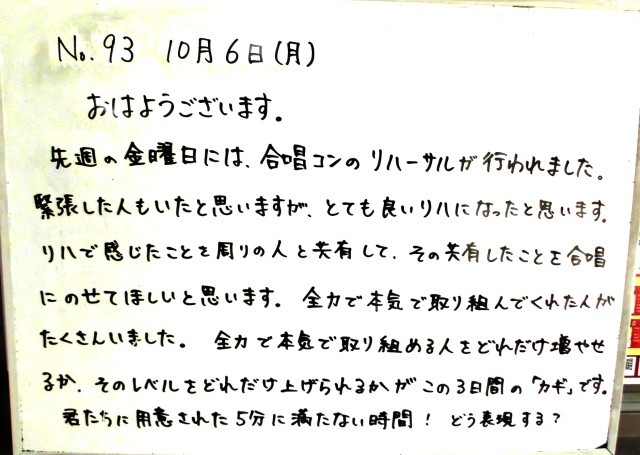 No.93 10月6日(月)
おはようございます。
先週の金曜日には、合唱コンのリハーサルが行われました。
緊張した人もいたと思いますが、とても良いリハになったと思います。
リハで感じたことを周りの人と共有して、その共有したことを合唱
にのせてほしいと思います。全力で本気で取り組んでくれた人が
たくさんいました。全力で本気で取り組める人をどれだけ増やせ
るか、そのレベルをどれだけ上げられるかがこの3日間の「カギ」です。
君たちに用意された5分に満たない時間！どう表現する？